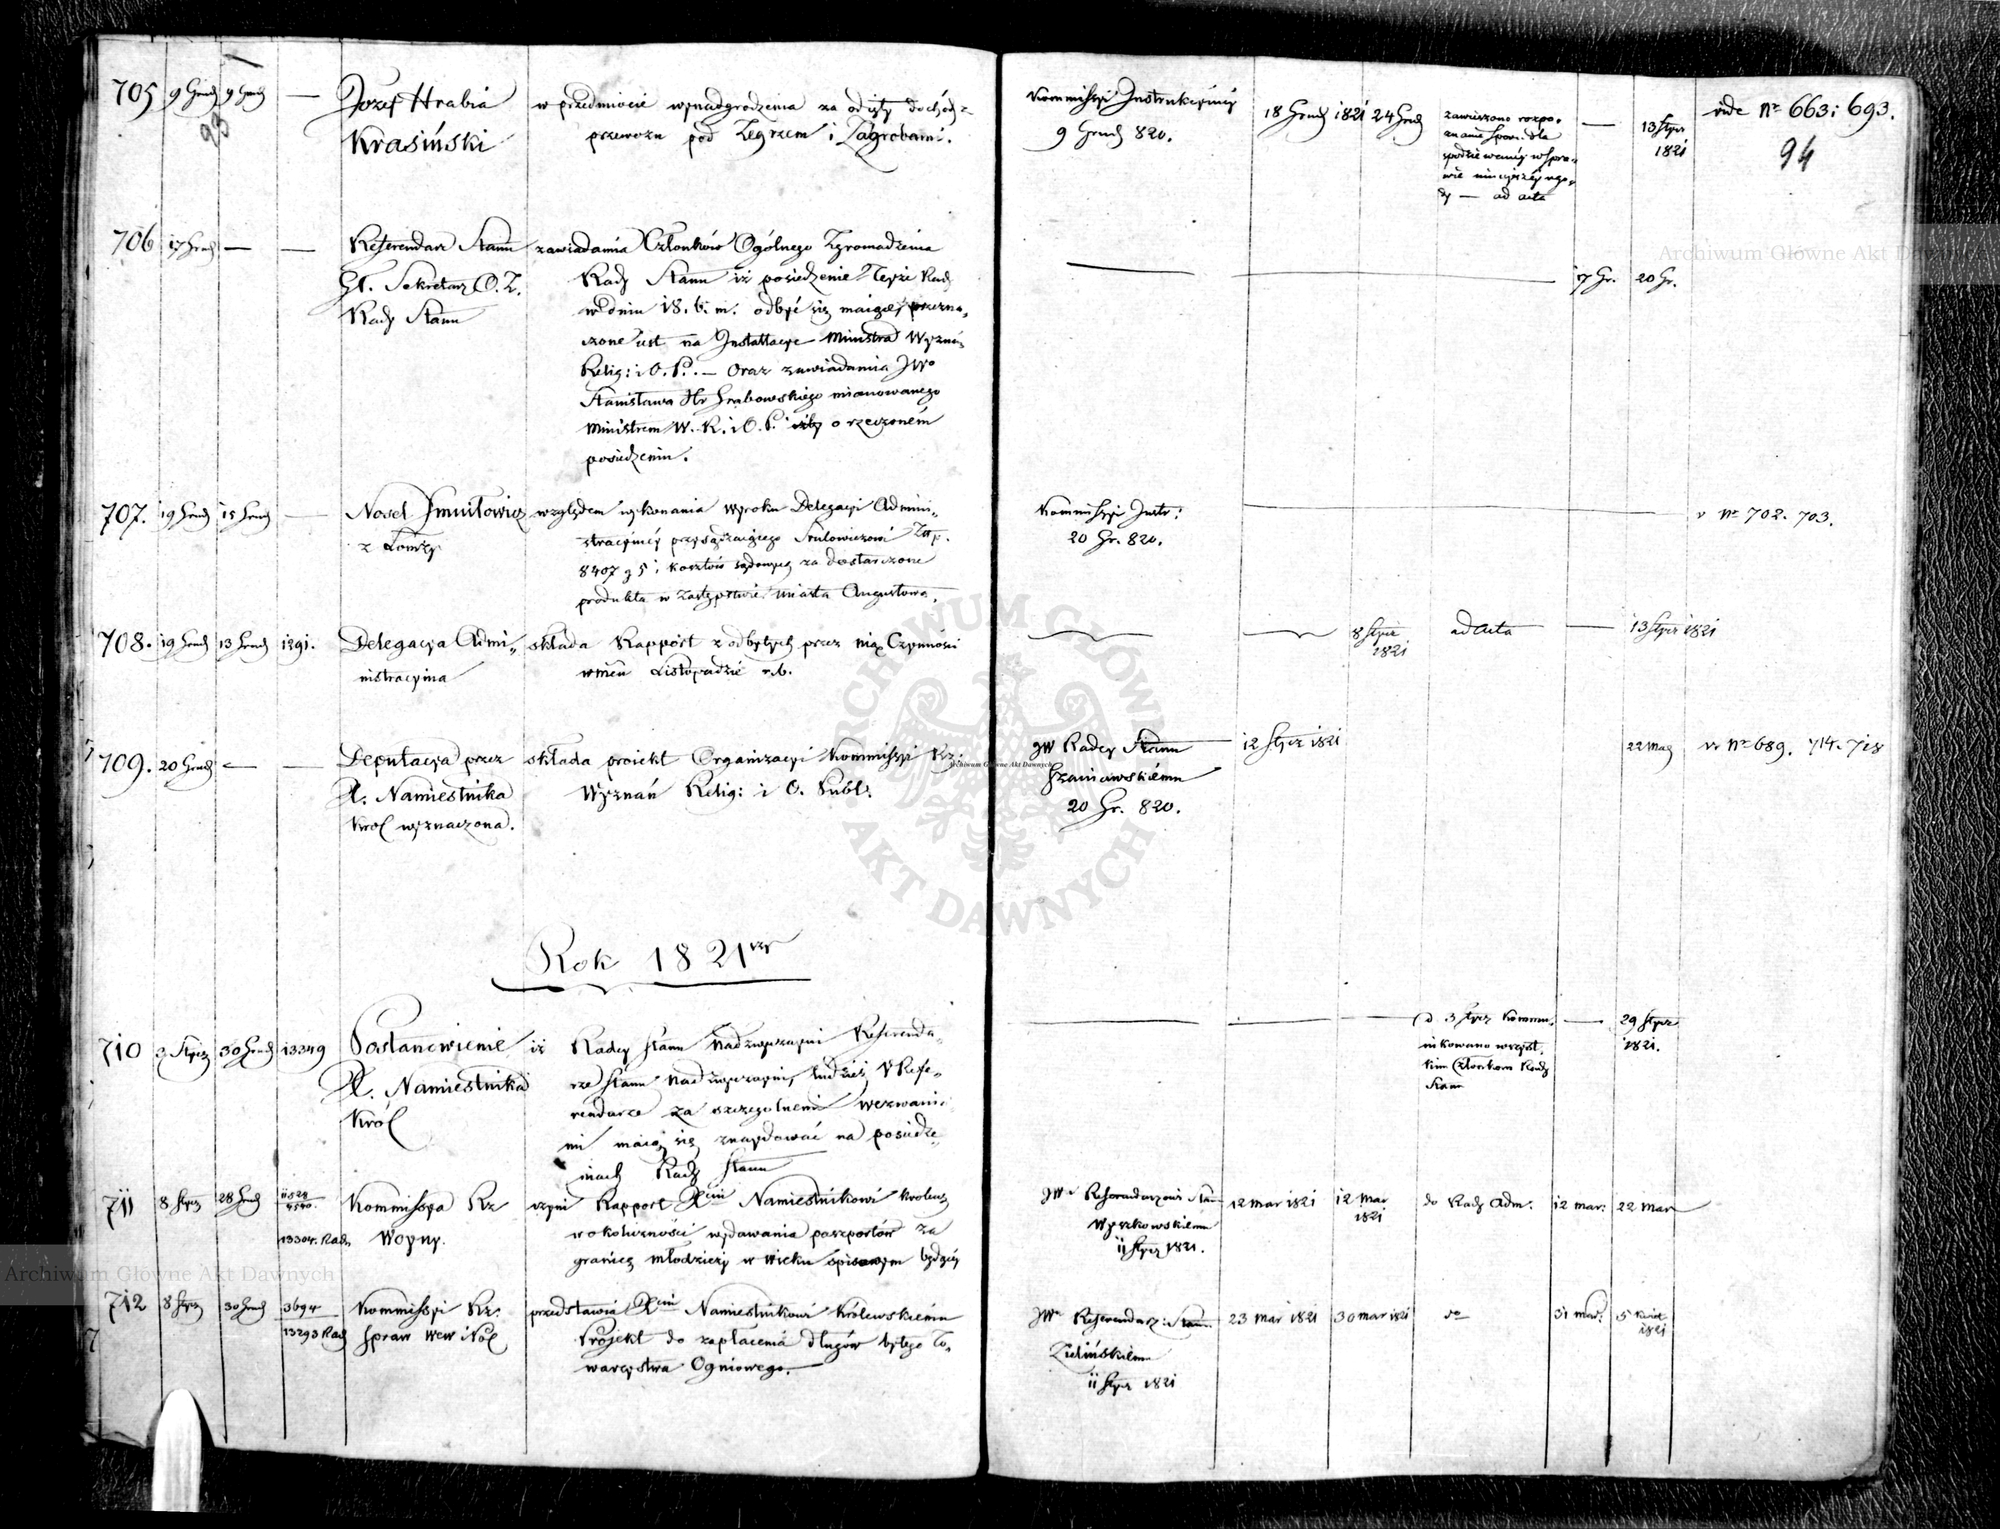 705 9 Grud 9 Grud — Józef Hrabia w przedmiocie wynadgrodzenia za odjęty dochód z
93 Krasiński przewozu pod Zegrzem i Zagrobami.
706 17 Grud — — Referendarz Stanu zawiadamia Członków Ogólnego Zgromadzenia
Gł. Sekretarz O. Z. Rady Stanu iż posiedzenie Teyże Rady
Rady Stanu w dniu 18. b. m. odbyć się maiące, przezna-
czone iest na Installacyę Ministra Wyznań
Relig: i O. P. — Oraz zawiadamia JWo
Stanisława Hr Grabowskiego mianowanego
Ministrem W. R. i O. P. o rzeczoném
posiedzeniu.
707. 19 Grud 15 Grud — względem wykonania wyroku Delegacyi Admini-
z Łomży stracyiney Złtp.
8407 g 5 i kosztów sądowych za dostarczone
produkta w zastępstwie miasta Augustowa.
708. 19 Grud 13 Grud 1291. Delegacya Admi- składa Rapport z odbytych przez nią Czynności
nistracyina w Listopadzie r. b.
709. 20 Grud — — Deputacya przez składa proiekt Organizacyi Kommissyi Rz:
X. Namiestnika Wyznań Relig: i O. Publ.
Król wyznaczona.
Rok 1821
710 3 Stycz 30 Grud 13349 Postanowienie iż Radcy Stanu Nadzwyczayni Referenda-
X. Namiestnika rze Stanu Nadzwyczayni, tudzież Refe-
Król rendarze za szczególnemi wezwania-
mi maią się znaydować na posiedze-
niach Rady Stanu
711 8 Stycz 28 Grud 11528 Kommissya Rz czyni Rapport Xciu Namiestnikowi Królews
4540. 13304. Rad. Woyny. w okoliczności wydawania paszportów za
granicę młodzieży w wieku spisowym będący
712 8 Stycz 30 Grud 3694 Kommissyi Rz. przedstawia Xciu Namiestnikowi Królewskiemu
13293 Rad Spraw Wew i Pol Projekt do zapłacenia długów byłego To-
warzystwa Ogniowego.
Kommissyi Instrukcyiney 18 Grud 1821 24 Grud zawieszono rozpo- — 13 Stycz vide No 663 i 693.
9 Grud 820. znanie spodziewaney w spra- 1821 94
wie ninieyszey ugo-
dy — ad acta
17 Gr. 20 Gr.
Kommissyi Instr: v No 702. 703.
20 Gr. 820.
8 Stycz ad Acta — 13 Stycz 1821
1821
JW Radcy Stanu 12 Stycz 1821 22 Maj v. No 689. 714. 718
Szaniawskiemu
20 Gr. 820.
d. 3 Stycz Kommu- — 29 Stycz
nikowano wszyst- 1821.
kim Członkom Rady
Stanu
JWo Referendarzowi Stanu 12 Mar 1821 12 Mar do Rady Adm. 12 Mar: 22 Mar
Wyszkowskiemu 1821
11 Stycz 1821.
JWo Referendarz: Stanu 23 Mar 1821 30 Mar 1821 do 31 Mar. 5 Kwiet
Zielińskiemu 1821
11 Stycz 1821
Archiwum Główne Akt Dawnych
Archiwum Główne Akt Dawnych
Archiwum Główne Akt Dawnych
ARCHIWUM GŁÓWNE AKT DAWNYCH